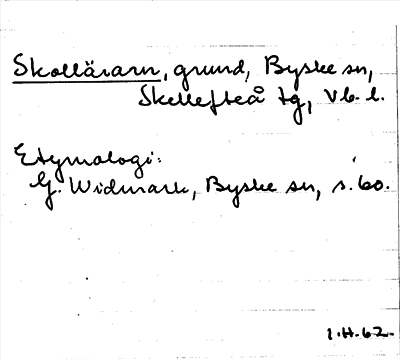 Skollärarn, grund, Byske sn,
Skellefteå tg, Vb. l.
Etymologi:
G. Widmark, Byske sn, s. 60.
I.H.62.